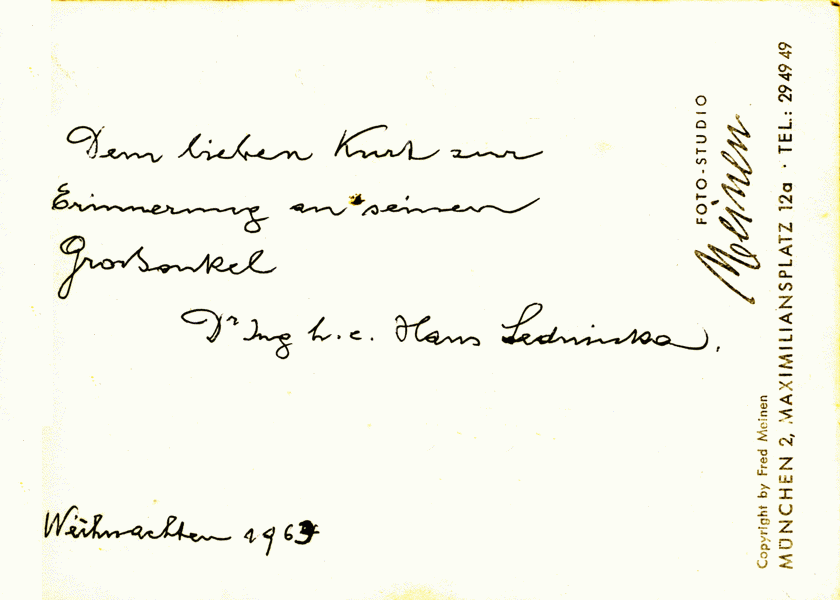 Dem lieben Kurt zur
Erinnerung an seinen
Großonkel
Dr Ing h.c. Hans Ledwinka.
Weihnachten
FOTO-STUDIO
Meinen
Copyright by Fred Meinen
MÜNCHEN 2, MAXIMILIANSPLATZ 12a · TEL.: 29 49 49